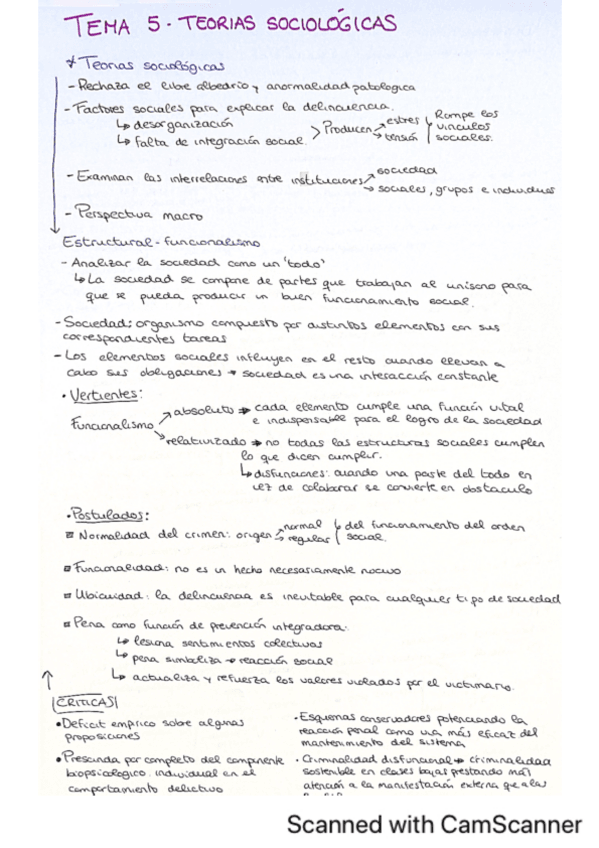 TEMA 5 - TEORIAS SOCIOLÓGICAS
* Teorias sociológicas
- Rechaza el libre albedrio y anormalidad patologica
- Factores sociales para explicar la delincuencia.
↳ desorganización
↳ falta de integración social.
> Producen
estres
tensión
Rompe los
vinculos
sociales.
- Examinan las interrelaciones entre instituciones
sociedad
sociales, grupos e individuos
- Perspectiva macro
Estructural - funcionalismo
- Analizar la sociedad como un 'todo'
↳ La sociedad se compone de partes que trabajan al unisono para
que se pueda producir un buen funcionamiento social.
- Sociedad: organismo compuesto por distintos elementos con sus
correspondientes tareas
- Los elementos sociales influyen en el resto cuando llevan a
cabo sus obligaciones → sociedad es una interacción constante
• Vertientes:
Funcionalismo
absoluto → cada elemento cumple una función vital
e indispensable para el logro de la sociedad
relativizado → no todas las estructuras sociales cumplen
lo que dicen cumplir.
↳ disfunciones: cuando una parte del todo en
vez de colaborar se convierte en obstaculo
• Postulados:
Normalidad del crimen: origen
normal
regular
del funcionamiento del orden
social.
Funcionalidad: no es un hecho necesariamente nocivo
Ubicuidad: la delincuencia es inevitable para cualquier tipo de sociedad
Pena como función de prevención integradora:
↳ lesiona sentimientos colectivos
↳ pena simboliza → reacción social
↳ actualiza y refuerza los valores violados por el victimario.
CRITICAS
• Deficit empirico sobre algunas
proposiciones
• Prescinda por completo del componente
biopsicologico, individual en el
comportamiento delictivo
• Esquemas conservadores potenciando la
reacción penal como via más eficaz del
mantenimiento del sistema
• Criminalidad disfuncional → criminalidad
sostenible en clases bajas prestando más
atención a la manifestación externa que a las
Scanned with CamScanner